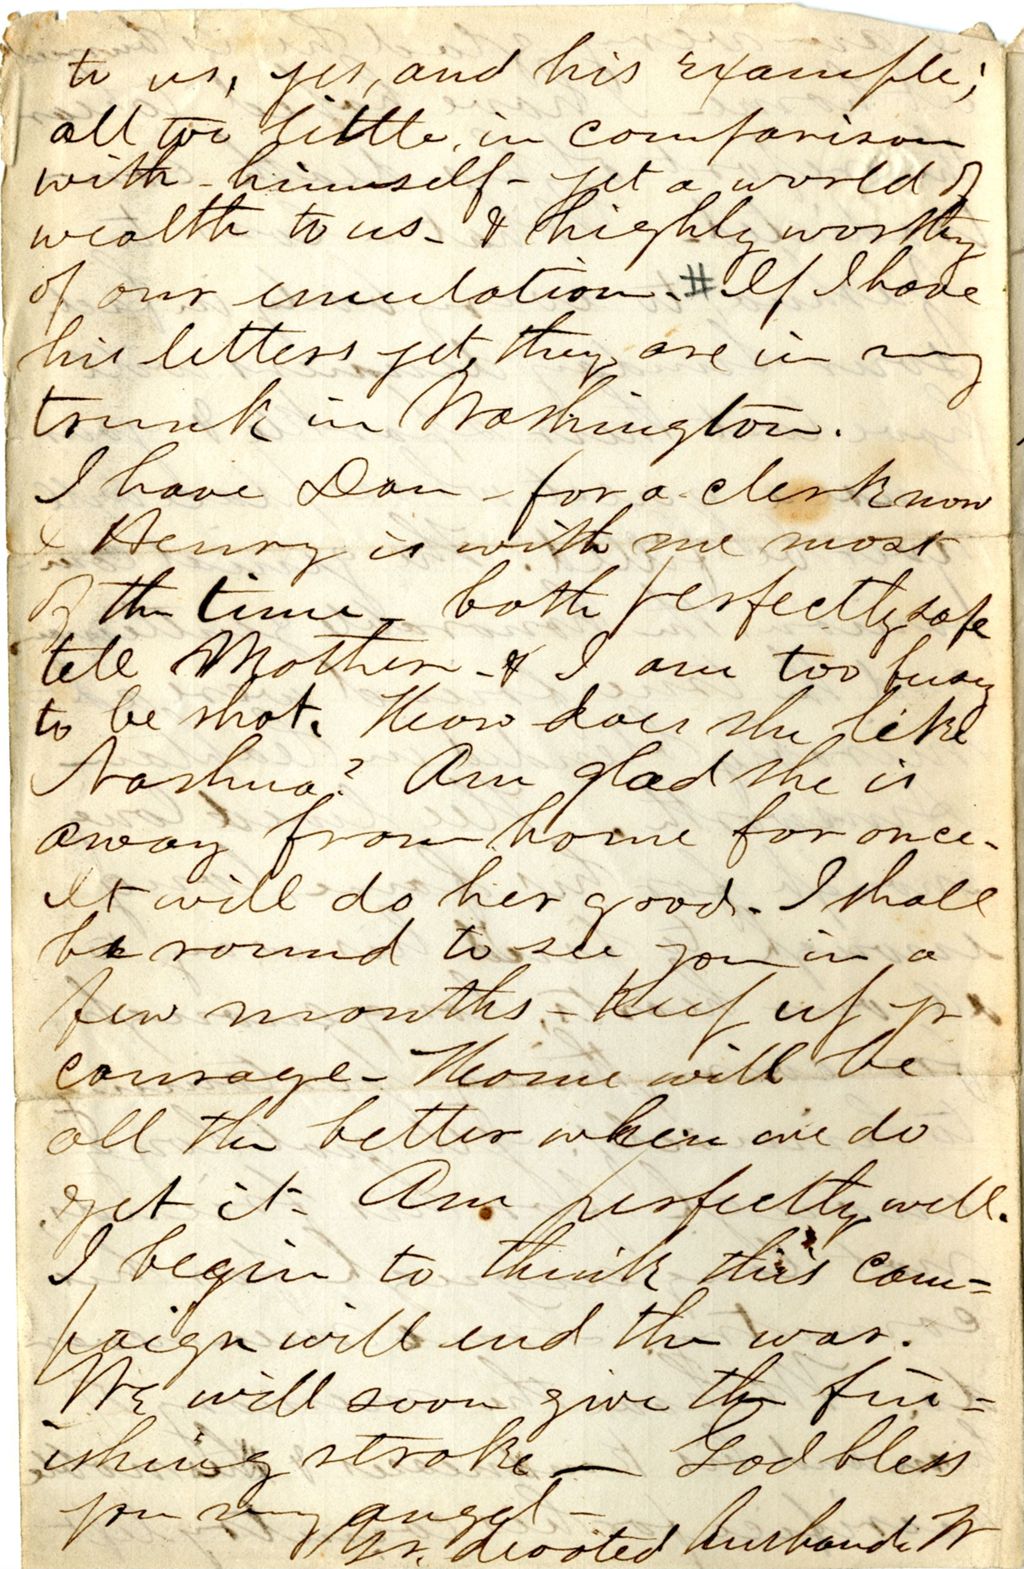 to us, yes, and his example;
all too little, in comparison
with - himself - yet a world of
wealth to us - & highly worthy
of our emulation. # If I have
his letters yet, they are in my
trunk in Washington.
I have Dan - for a clerk now
& Henry is with me most
of the time - both perfectly safe
tell Mother - & I am too busy
to be shot. How does she like
Nashua? Am glad she is
away from home for once -
It will do her good. I shall
be round to see you in a
few months - Keep up yr
courage - Home will be
all the better when we do
get it - Am perfectly well.
I begin to think this cam=
paign will end the war.
We will soon give the fin=
ishing stroke — God bless
you my angel -
Yr. devoted husband W